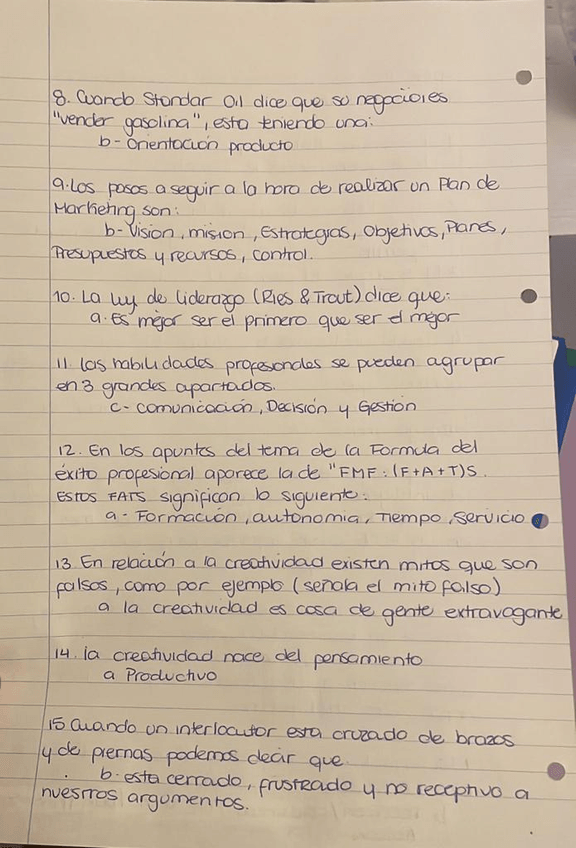 8. Cuando Standar Oil dice que su negocio es
"vender gasolina", esta teniendo una:
b- Orientación producto
9. Los pasos a seguir a la hora de realizar un Plan de
Marketing son:
b- Vision, mision, Estrategias, Objetivos, Planes,
Presupuestos y recursos, control.
10. La luy de Liderazgo (Ries & Trout) dice que:
a. Es mejor ser el primero que ser el mejor
11. las habilidades profesionales se pueden agrupar
en 3 grandes apartados.
c- comunicación, Decisión y Gestion
12. En los apuntes del tema de la Formula del
éxito profesional aparece la de "FMF: (F+A+T)S.
ESTOS FATS significan lo siguiente:
a- Formación, autonomia, Tiempo, Servicio
13 En relación a la creatividad existen mitos que son
falsos, como por ejemplo (señala el mito falso)
a la creatividad es cosa de gente extravagante
14. la creatividad nace del pensamiento
a Productivo
15 Cuando un interlocutor esta cruzado de brazos
y de piernas podemos decir que
b. esta cerrado, frustrado y no receptivo a
nuestros argumentos.